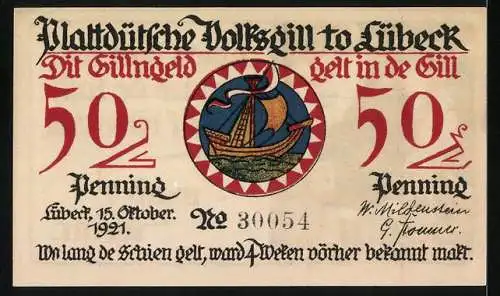 Plattdütsche Volksgill to Lübeck
Dit Gillngeld gelt in de Gill
50 50
Penning Penning
Lübeck, 15. Oktober. 1921.
No 30054
W. Mildenstein
Wo lang de Schien gelt, ward 4 Weken vörher bekannt makt.